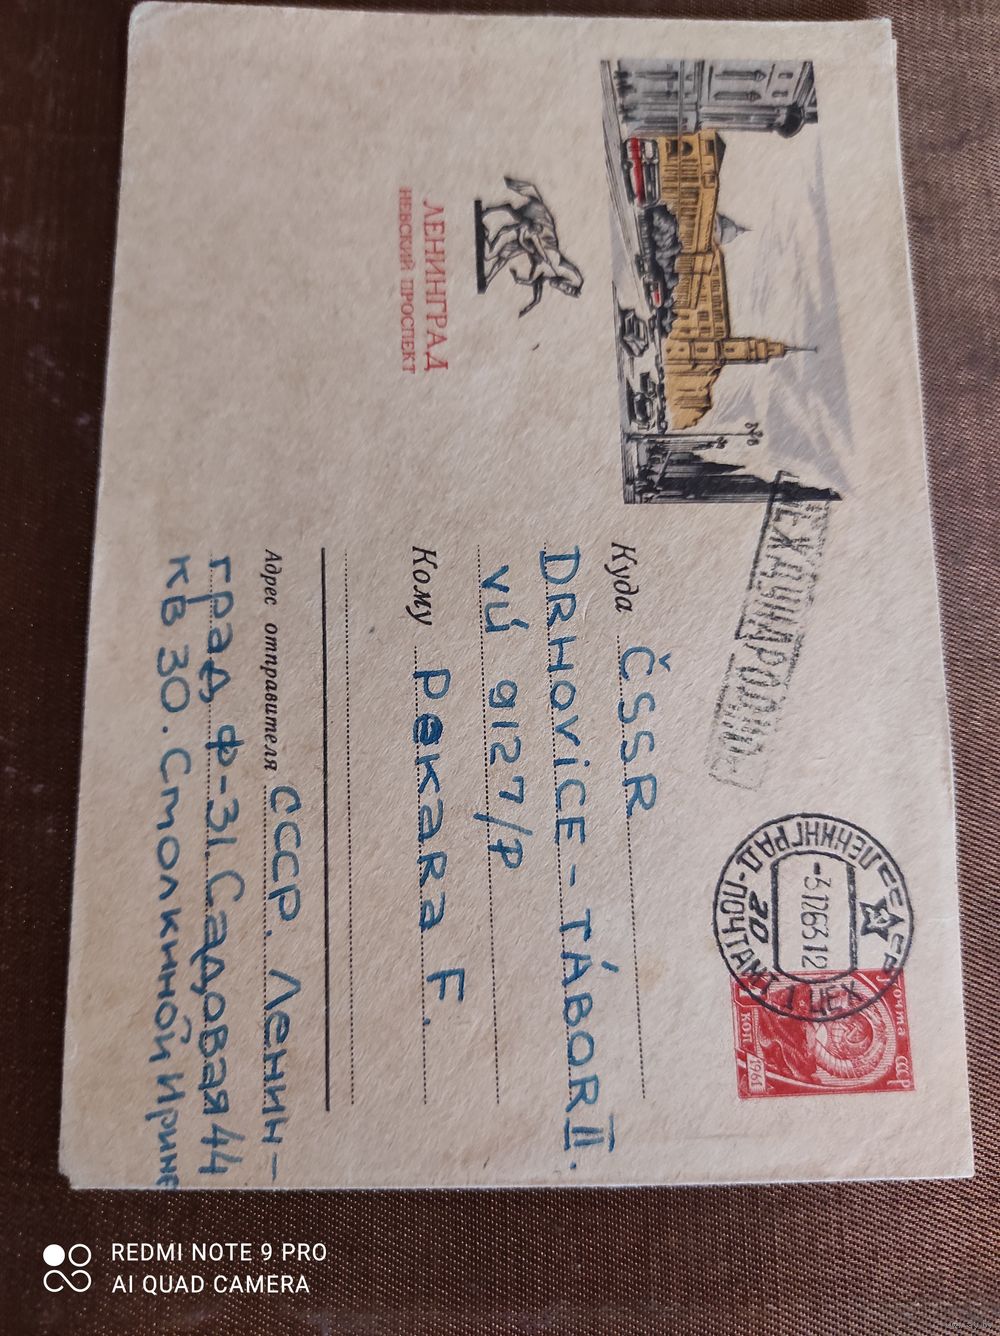 ЛЕНИНГРАД
НЕВСКИЙ ПРОСПЕКТ
МЕЖДУНАРОДНОЕ
ЛЕНИНГРАД-ПОЧТАМТ 1 ЦЕХ
20
-3.12.63 12
почта СССР
1 коп
1961
Куда ČSSR
DRHOVICE-TÁBOR II.
VÚ 9127/P
Кому PEKARA F.
Адрес отправителя СССР. Ленин-
град Ф-31. Садовая 44
кв 30. Столкиной Ирине
REDMI NOTE 9 PRO
AI QUAD CAMERA